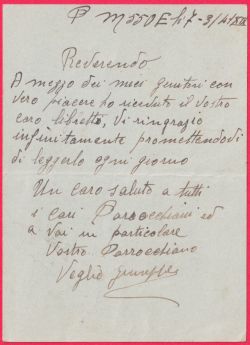 P M 550 E li 7-3/41/XIX
Reverendo
A mezzo dei miei genitori con
vero piacere ho ricevuto il vostro
caro libretto, Vi ringrazio
infinitamente promettendovi
di leggerlo ogni giorno
Un caro saluto a tutti
i cari Parrocchiani ed
a Voi in particolare
Vostro Parrocchiano
Voglio Giuseppe